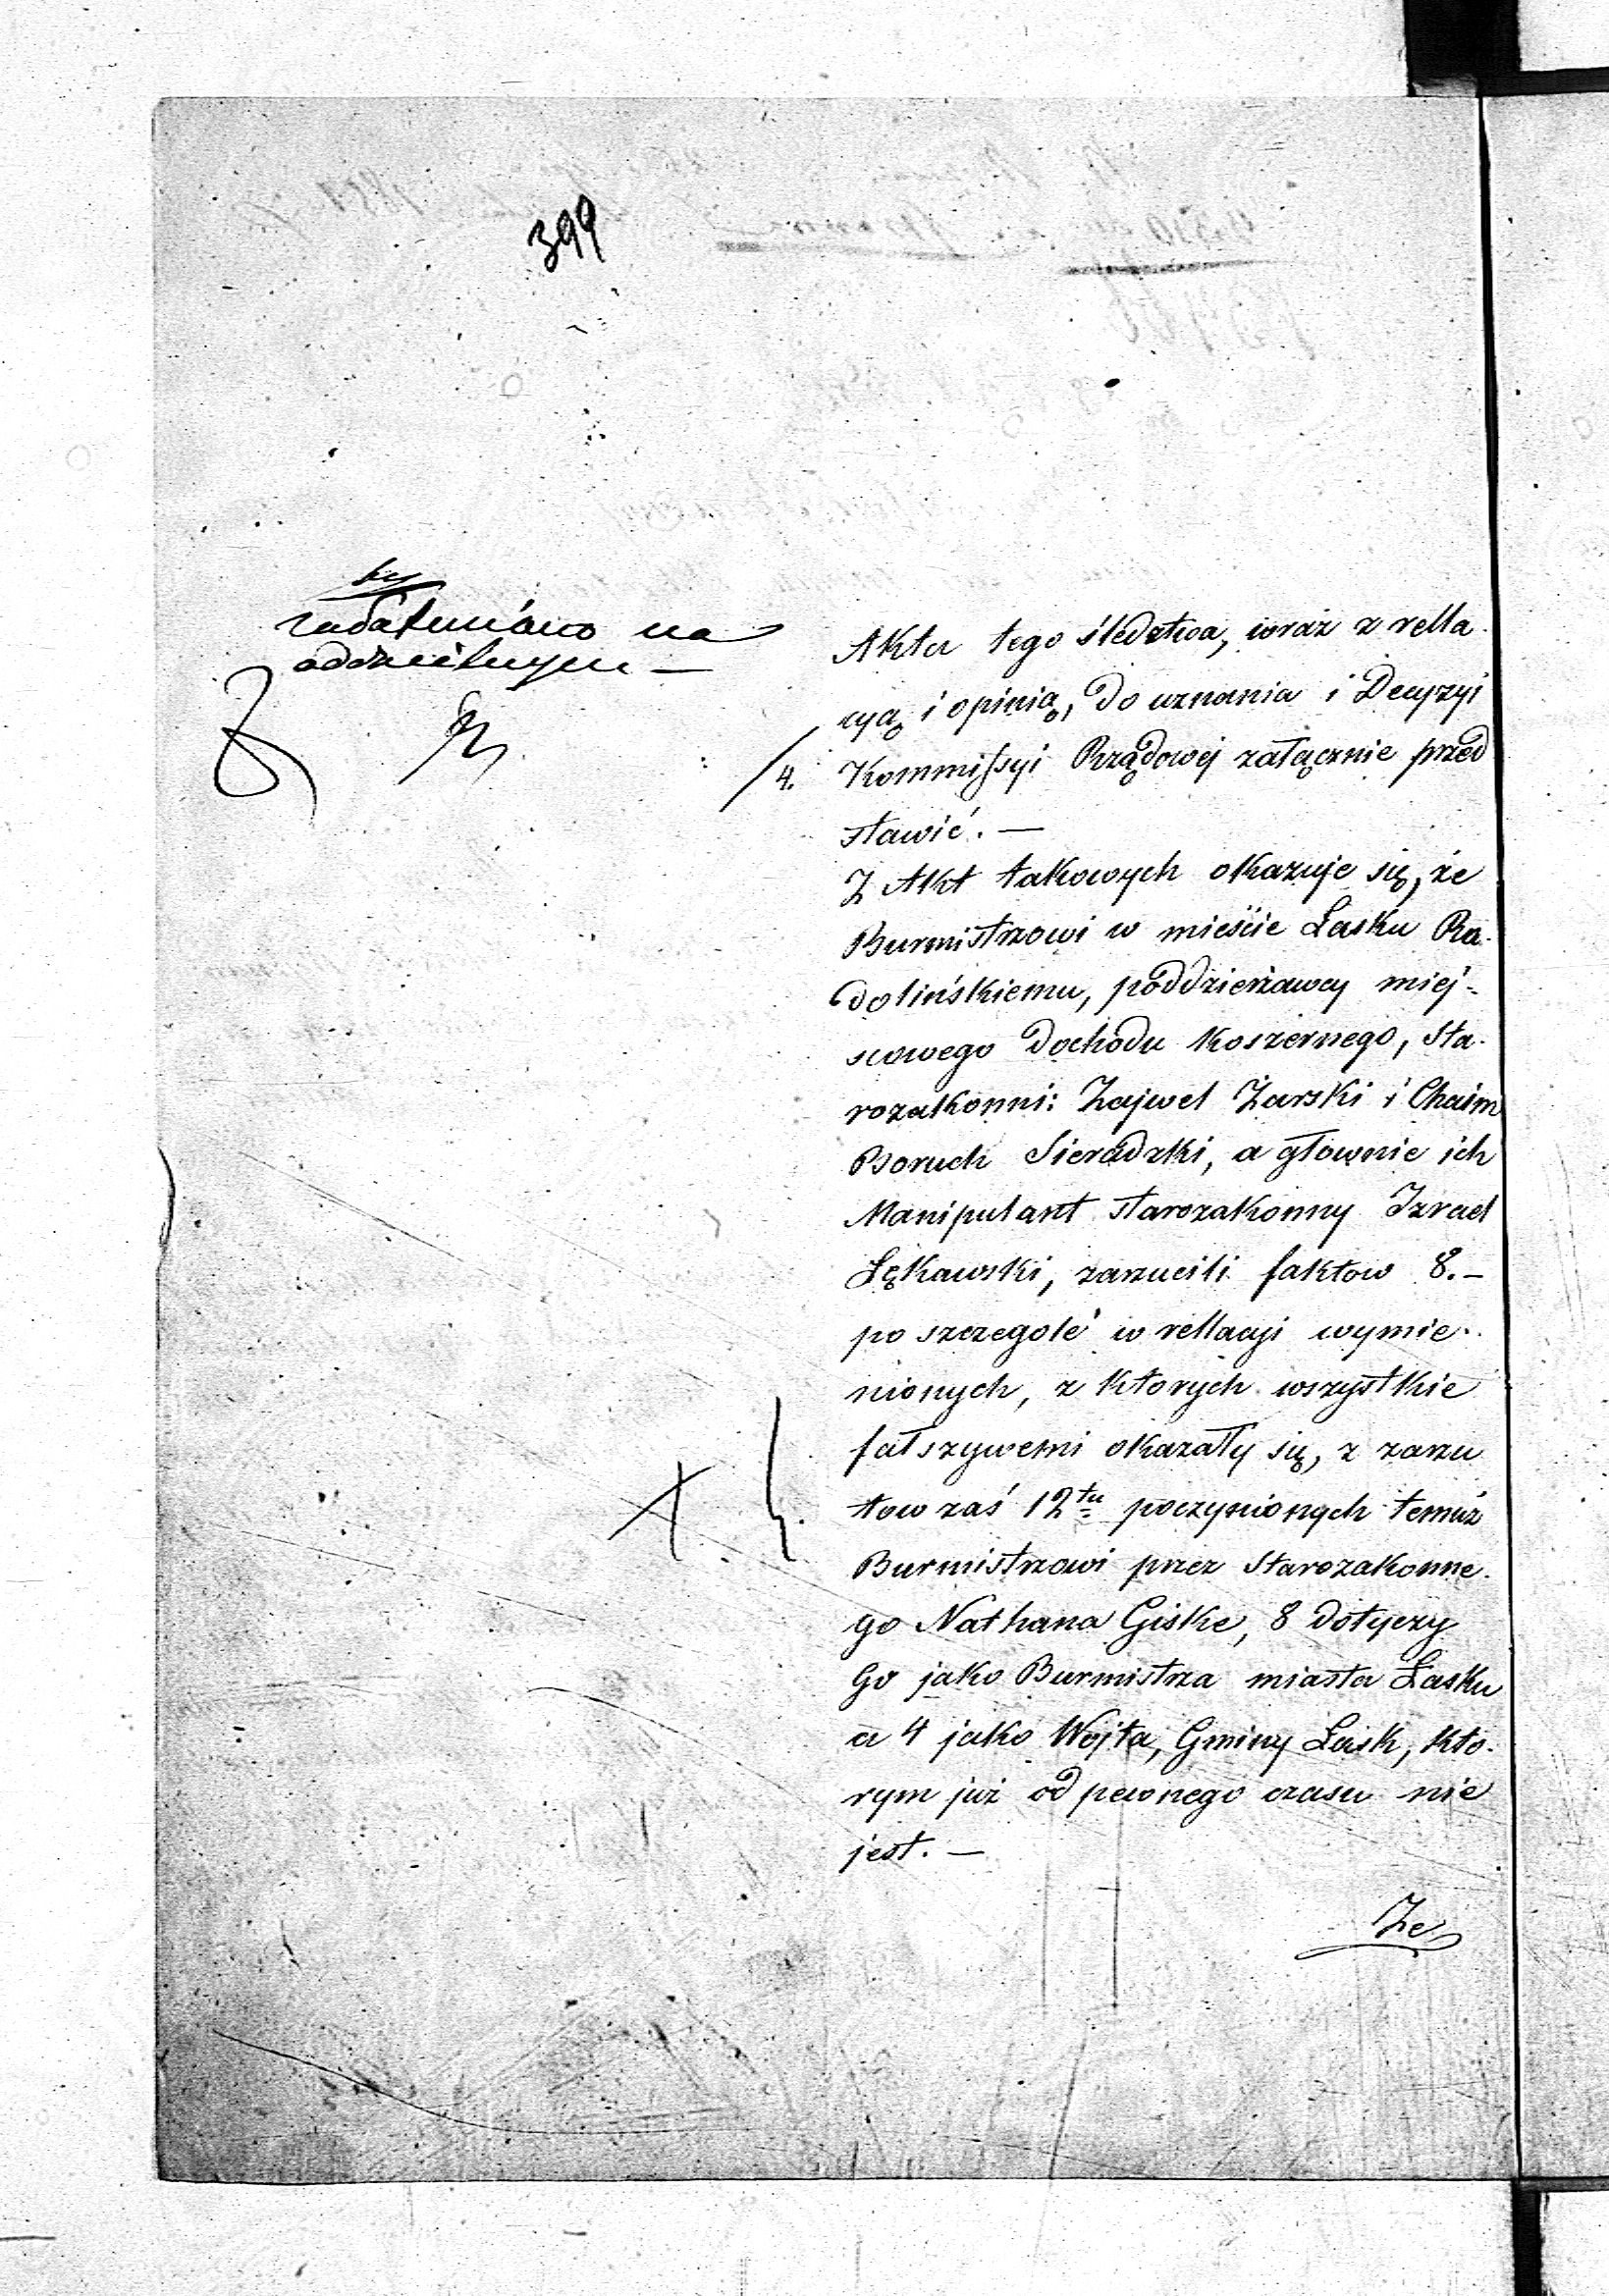 399
na
oddzielnym —
Akta tego śledztwa, wraz z rella
cyą i opinią, do uznania i Decyzyi
4. Kommissyi Rządowej załącznie przed
stawić. —
Z Akt takowych okazuje się, że
Burmistrzowi w mieście Łasku Ra-
dolińskiemu, poddzierżawcy miej-
scowego dochodu koszernego, sta-
rozakonni: Zajwel Żarski i Chaim
Boruch Sieradzki, a głownie ich
Manipulant starozakonny Izrael
Łękawski, zarzucili faktow 8.—
po szczegole w rellacyi wymie-
nionych, z ktorych wszystkie
fałszywemi okazały się, z zarzu
tow zaś 12tu poczynionych temuż
Burmistrzowi przez Starozakonne-
go Nathana Giske, 8 dotyczy
Go jako Burmistrza miasta Łasku
a 4 jako Wojta, Gminy Łask, kto-
rym już od pewnego czasu nie
jest. —
Ze